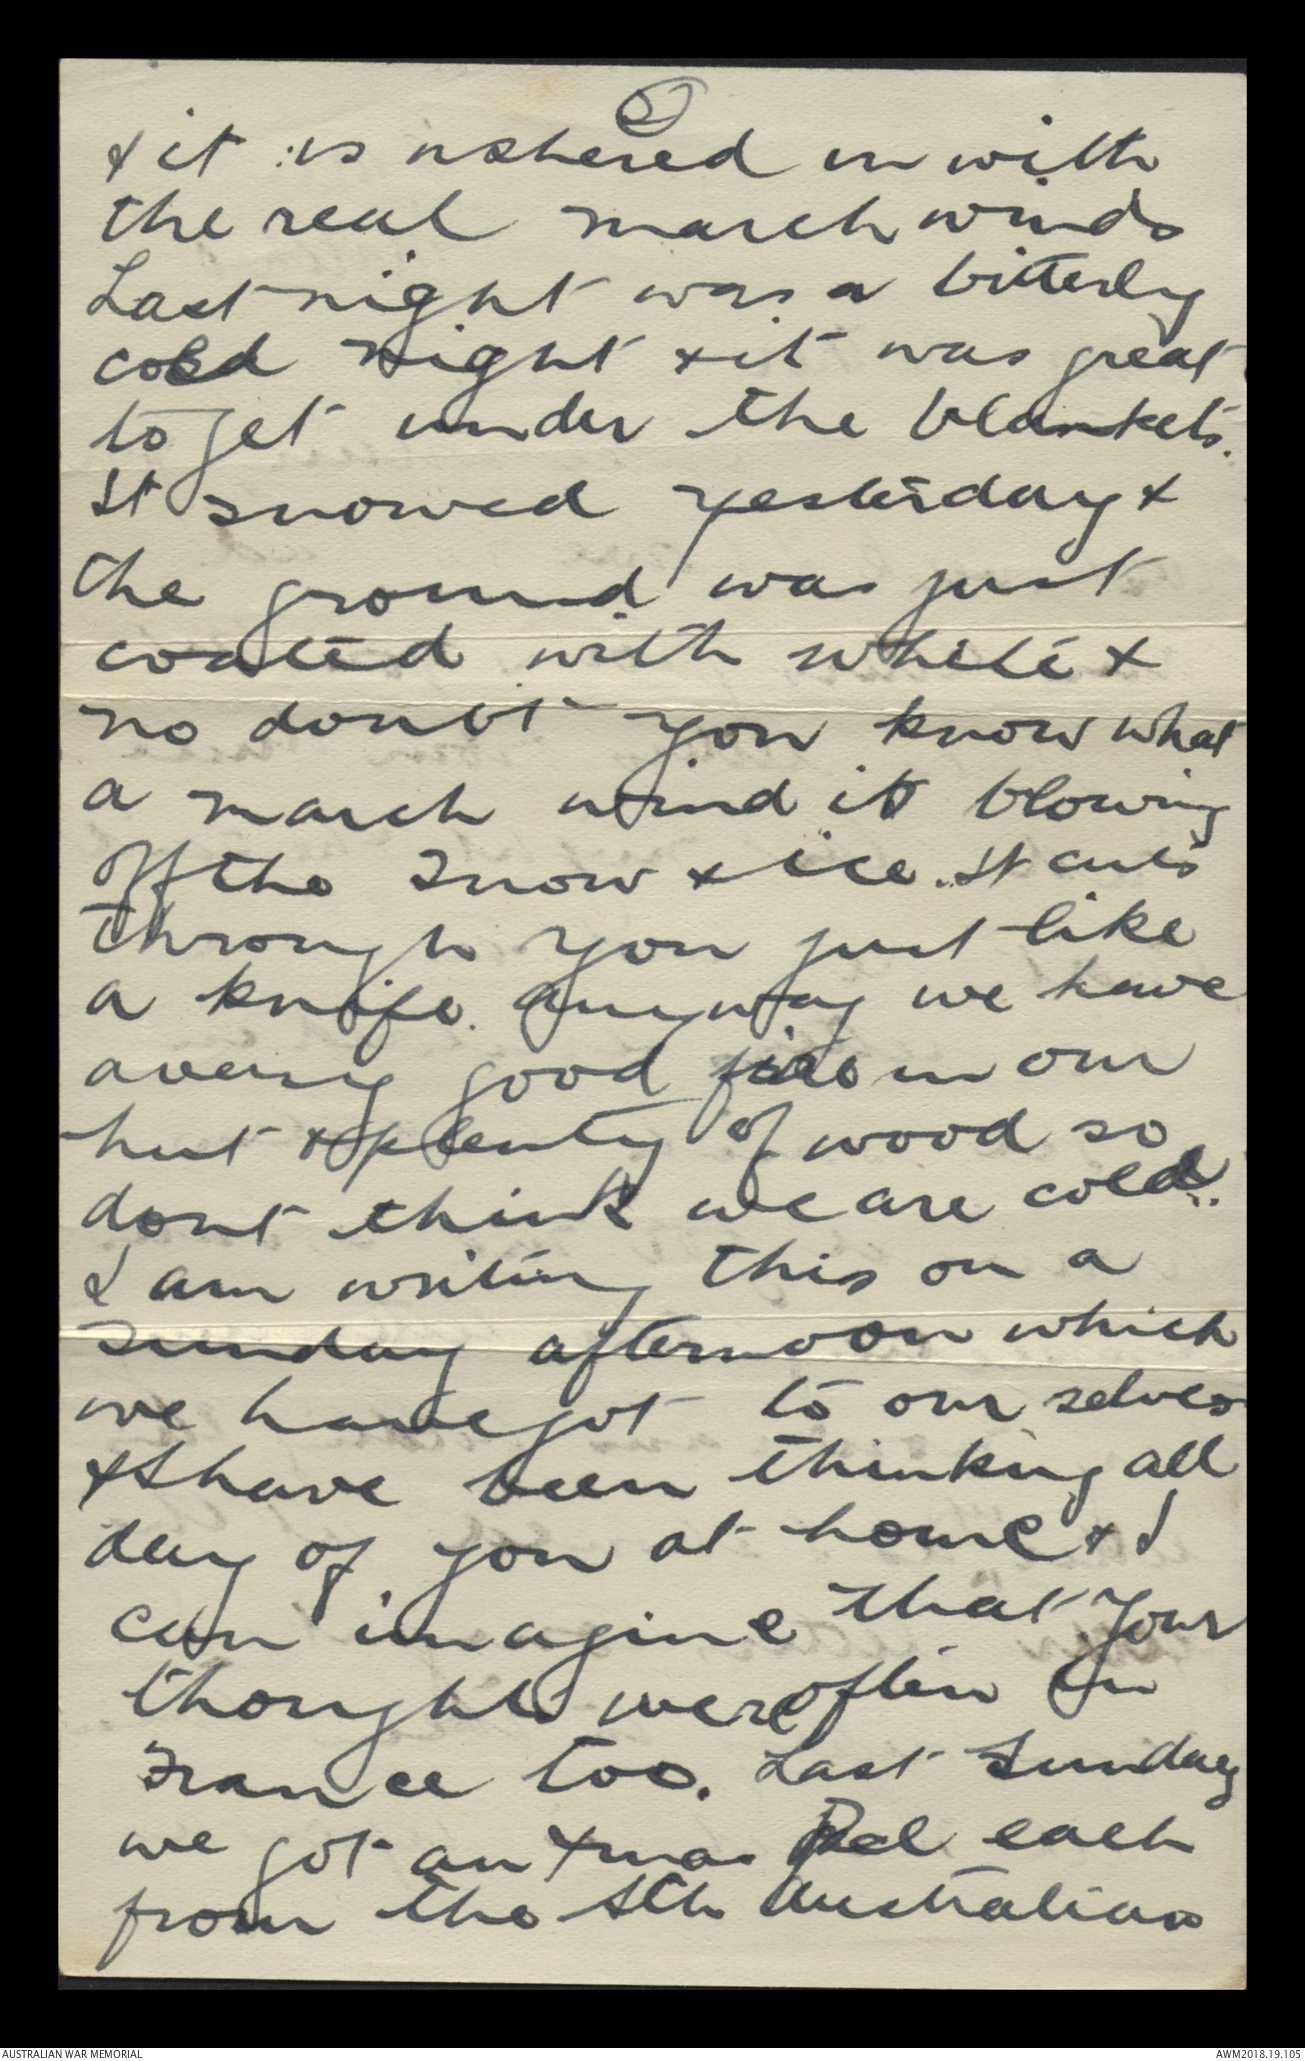 ②
& it is ushered in with
the real march winds
Last night was a bitterly
cold night & it was great
to get under the blankets.
It snowed yesterday &
the ground was just
coated with white &
no doubt you know what
a march wind is blowing
off the snow & ice. It cuts
through you just like
a knife. Anyway we have
a very good fire in our
hut & plenty of wood so
dont think we are cold.
I am writing this on a
Sunday afternoon which
we have got to our selves
& I have been thinking all
day of you at home & I
can imagine that your
thoughts were often in
France too. Last Sunday
we got an Xmas Pcl each
from the Sth Australian
AUSTRALIAN WAR MEMORIAL
AWM2018.19.105